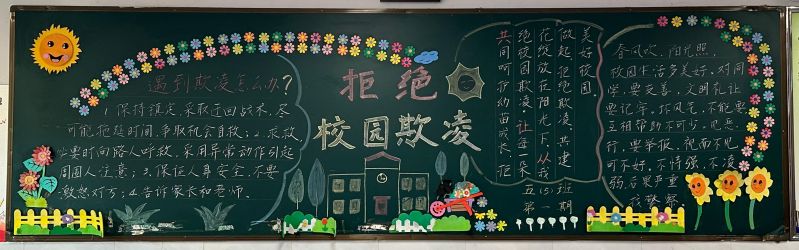 遇到欺凌怎么办?
1.保持镇定,采取迂回战术,尽
可能拖延时间,争取机会自救;2.求救
时要向路人呼救,采用异常动作引起
周围人注意;3.保证人身安全,不要
激怒对方;4.告诉家长和老师。
拒绝
校园欺凌
美好校园。
做起,拒绝欺凌,共建
花绽放在阳光下,从我
绝校园欺凌,让每一朵
共同呵护幼苗成长,拒
五(5)班
第一期
春风吹,阳光照,
校园生活多美好。对同
学,要友善,文明礼让
要记牢。扑风气,不能要
互相帮助不可少。见恶
行,要举报,视而不见
可不好。不恃强,不凌
弱,后果严重
我警察